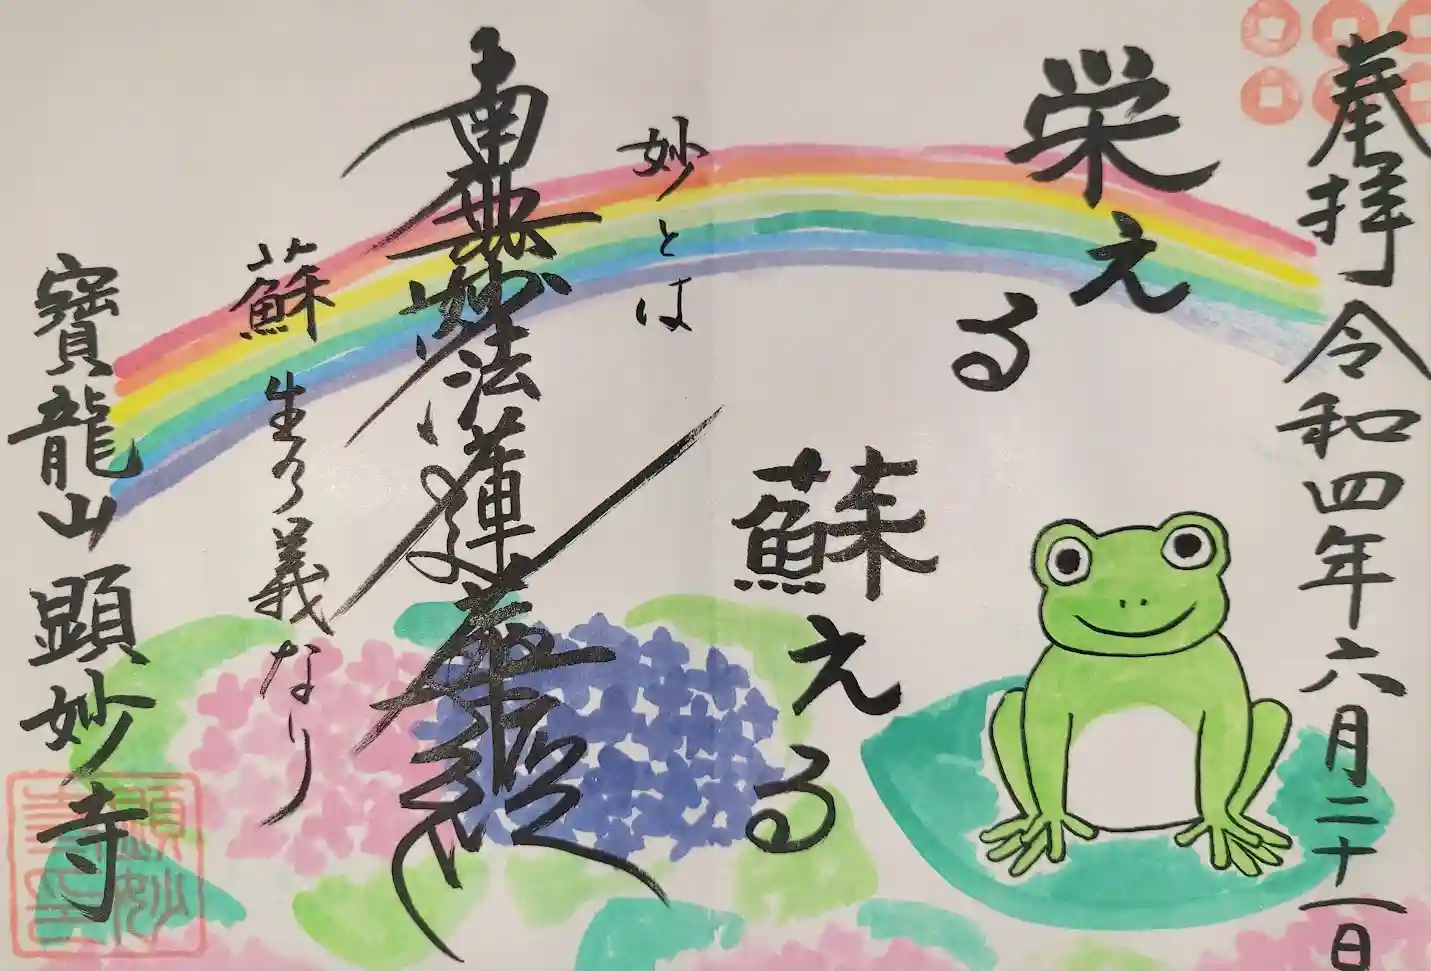 奉拝 令和四年六月二十一日
栄える
蘇える
妙とは
南無妙法蓮華経
蘇生の義なり
寶龍山 顕妙寺
顕妙
寺印